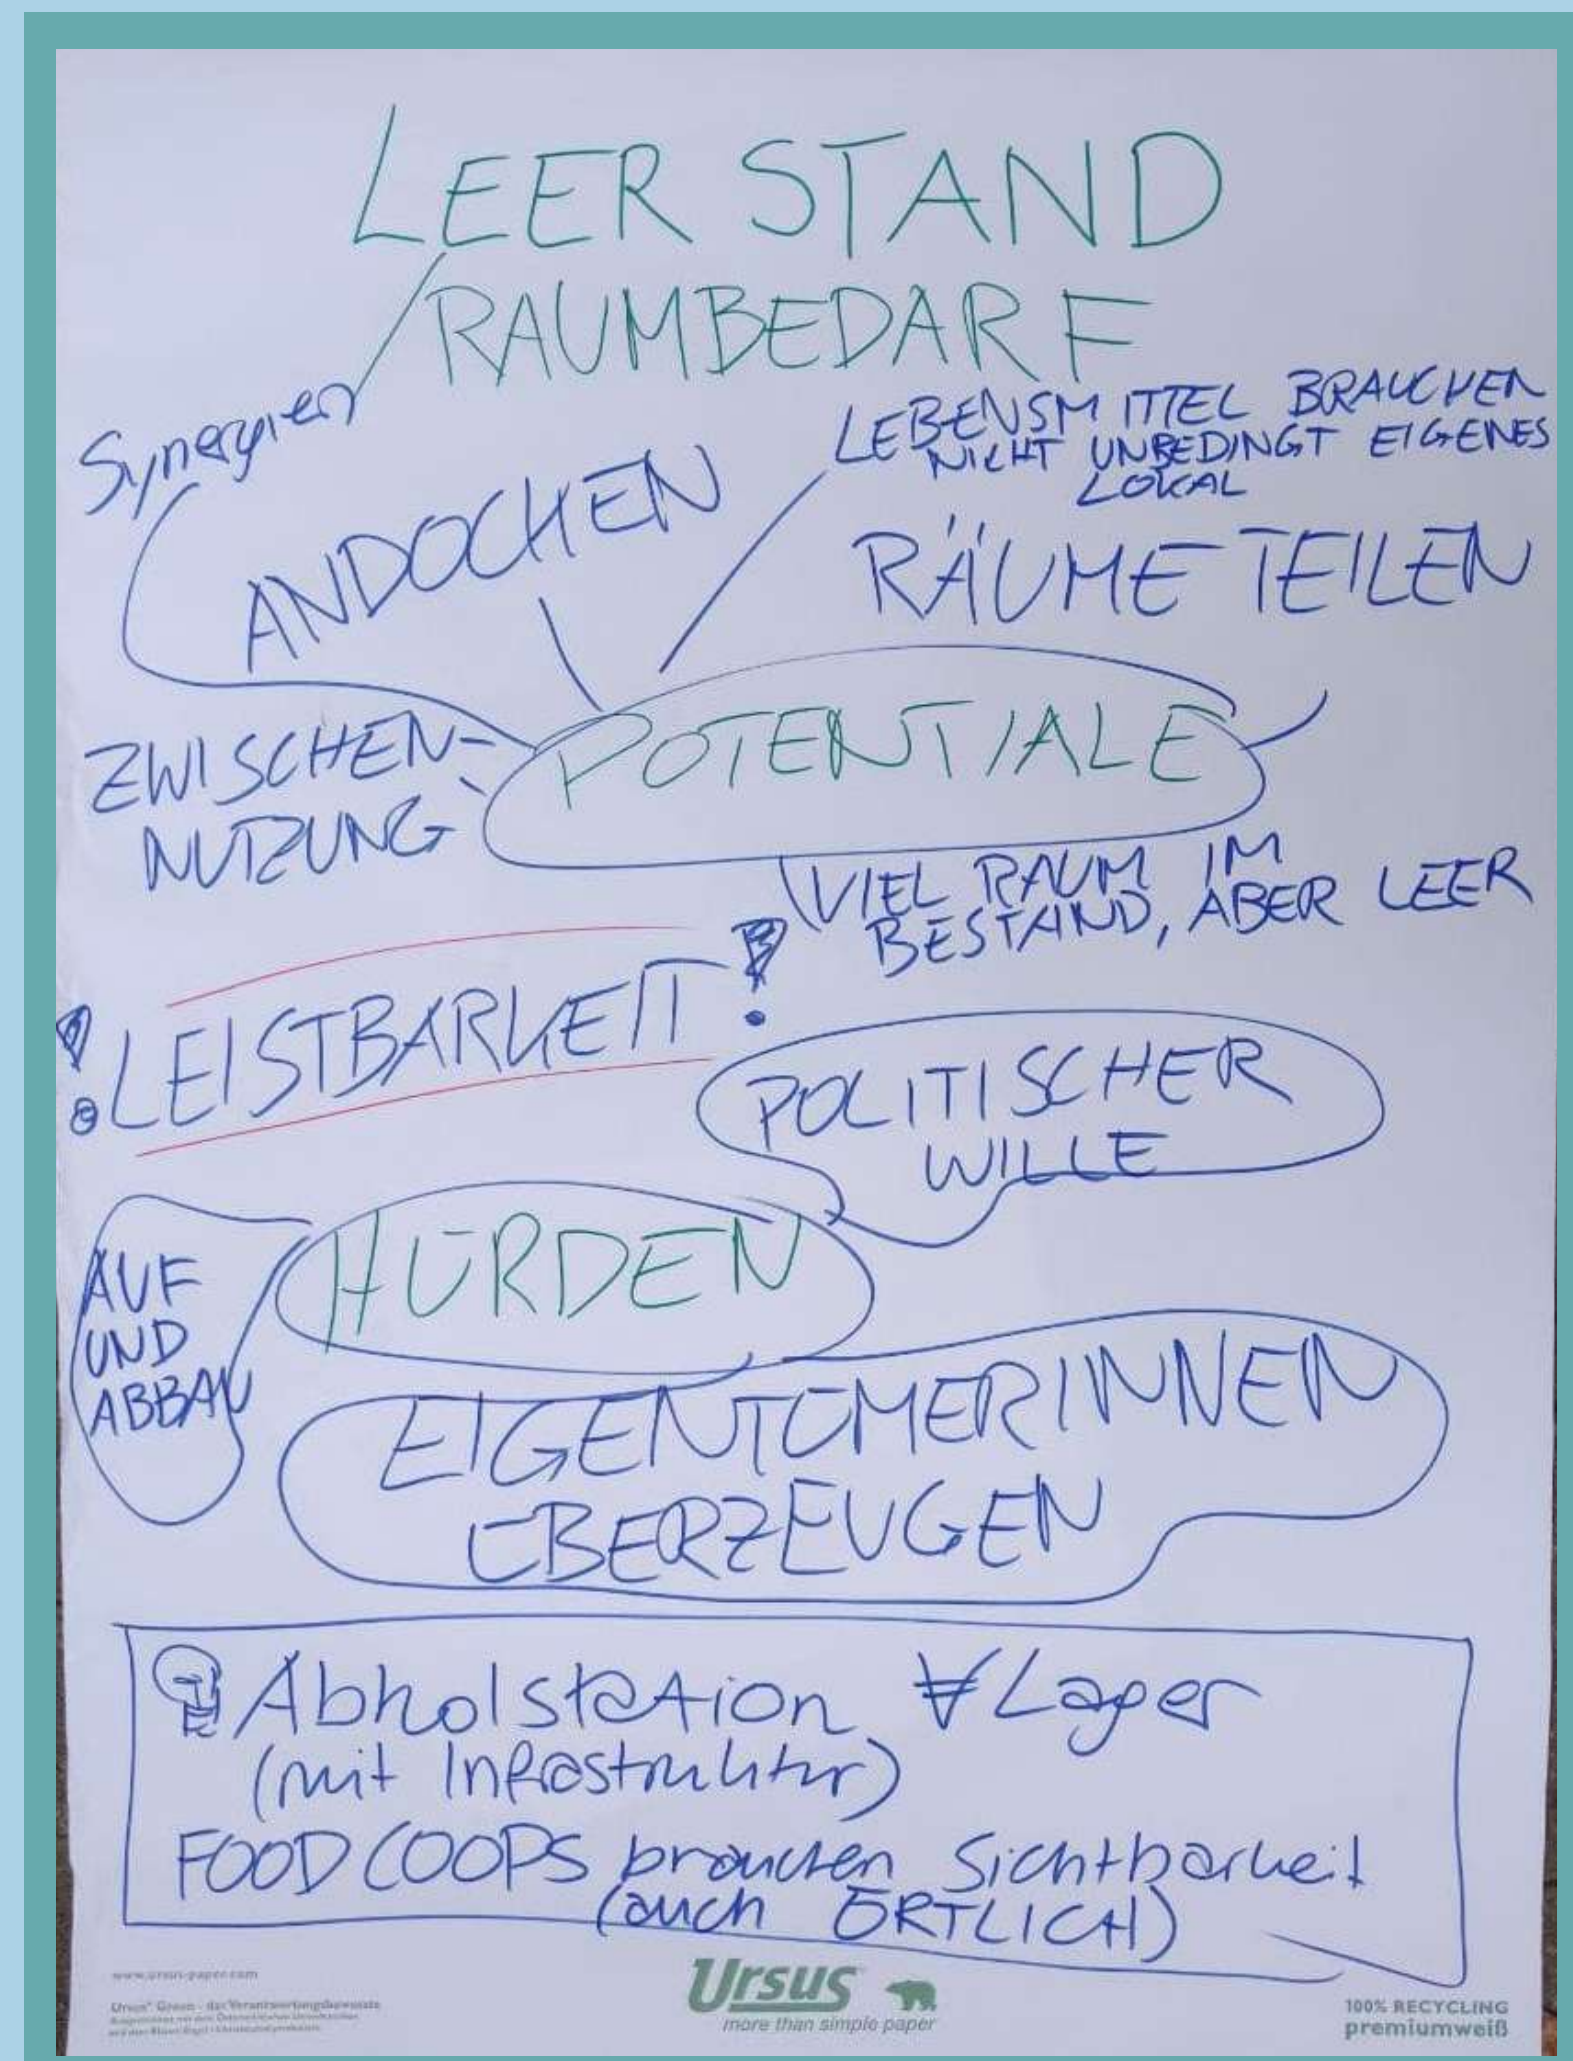 LEERSTAND
/RAUMBEDARF
Synergien
ANDOCHEN
LEBENSMITTEL BRAUCHEN
NICHT UNBEDINGT EIGENES
LOKAL
RÄUME TEILEN
POTENTIALE
ZWISCHEN-
NUTZUNG
VIEL RAUM IM
BESTAND, ABER LEER
! LEISTBARKEIT !
POLITISCHER
WILLE
HÜRDEN
AUF
UND
ABBAU
EIGENTÜMERINNEN
ÜBERZEUGEN
Abholstation ∀ Lager
(mit Infrastruktur)
FOODCOOPS brauchen Sichtbarkeit
(auch ÖRTLICH)
www.ursus-paper.com
Ursus® Green - der Verantwortungsbewusste
Ursus
more than simple paper
100% RECYCLING
premiumweiß